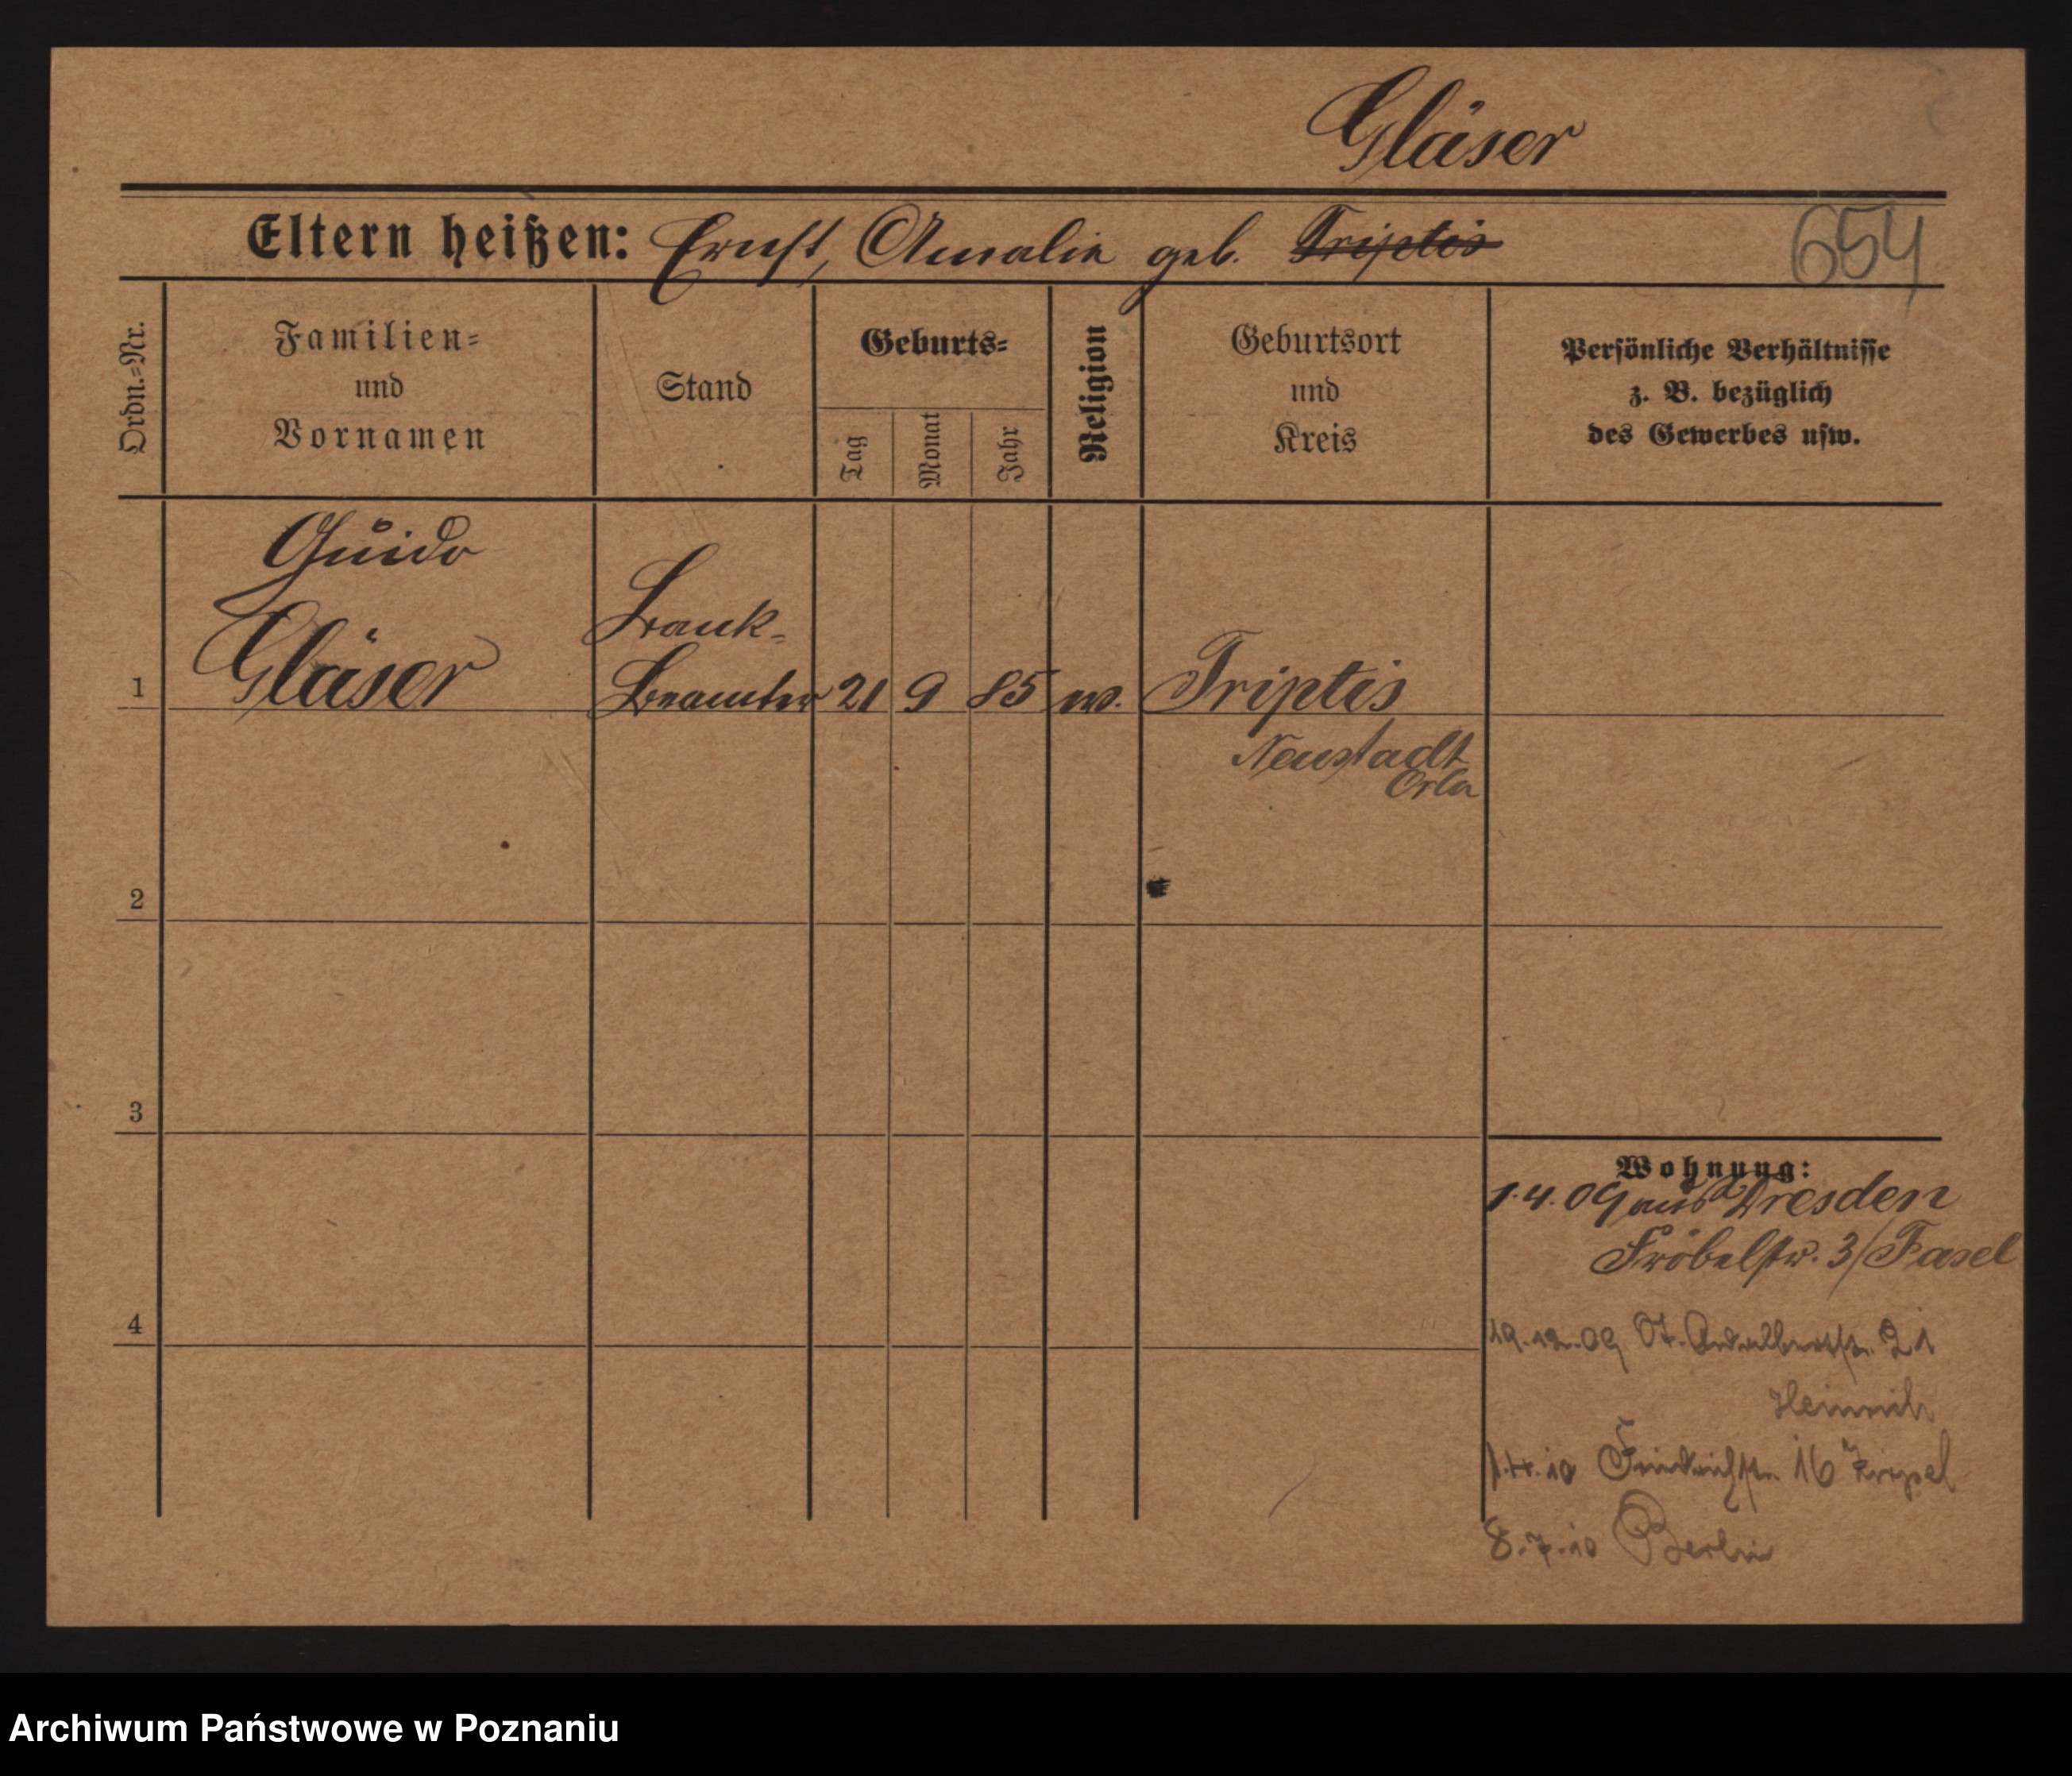 Gläser
Eltern heißen: Ernst, Amalie geb. Triptis
654
Ordn.=Nr.
Familien=
und
Vornamen
Stand
Geburts=
Tag
Monat
Jahr
Religion
Geburtsort
und
Kreis
Persönliche Verhältnisse
z. B. bezüglich
des Gewerbes usw.
Guido
Bank-
1 Gläser Beamter 21 9 85 ev. Triptis
Neustadt
Orla
2
3
Wohnung:
1.4.09 aus Dresden
Fröbelstr. 3/Fasel
4
19.12.09 St. Adalbertstr. 21
Heinrich
1.4.10 Friedrichstr. 16
8.7.10 Berlin
Archiwum Państwowe w Poznaniu